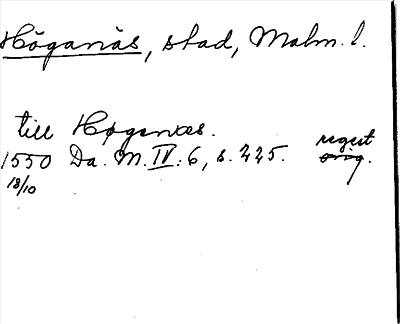 Höganäs, stad, Malm. l.
till Høgenæs.
regest
1550 Da. M. IV: 6, s. 225. orig.
18/10